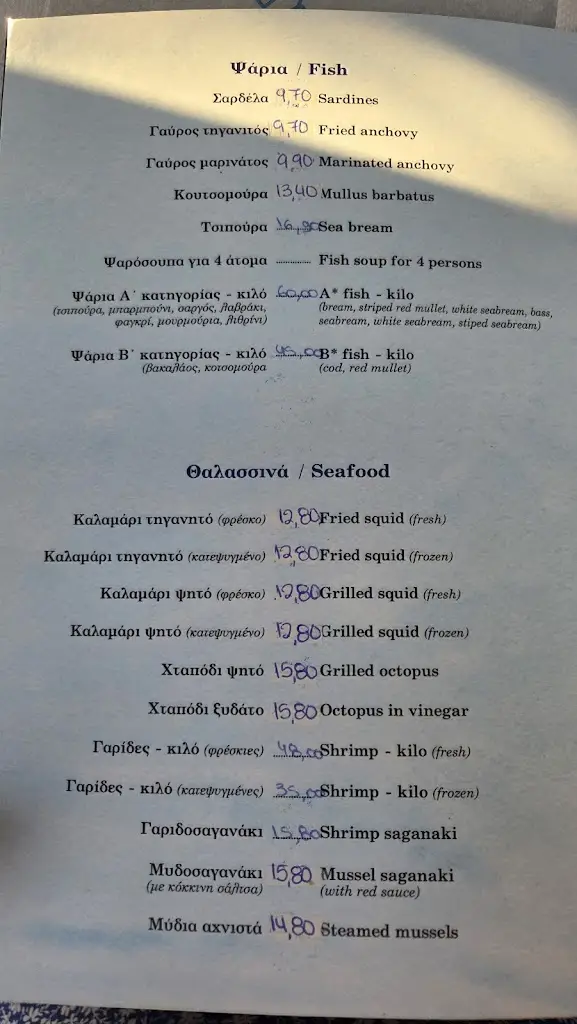 Ψάρια / Fish
Σαρδέλα 9,70 Sardines
Γαύρος τηγανιτός 9,70 Fried anchovy
Γαύρος μαρινάτος 9,90 Marinated anchovy
Κουτσομούρα 13,40 Mullus barbatus
Τσιπούρα 16,80 Sea bream
Ψαρόσουπα για 4 άτομα .............. Fish soup for 4 persons
Ψάρια Α΄ κατηγορίας - κιλό 60,00 A* fish - kilo
(τσιπούρα, μπαρμπούνι, σαργός, λαβράκι, (bream, striped red mullet, white seabream, bass,
φαγκρί, μουρμούρια, λιθρίνι) seabream, white seabream, stiped seabream)
Ψάρια Β΄ κατηγορίας - κιλό 45,00 B* fish - kilo
(βακαλάος, κοτσομούρα (cod, red mullet)
Θαλασσινά / Seafood
Καλαμάρι τηγανητό (φρέσκο) 12,80 Fried squid (fresh)
Καλαμάρι τηγανητό (κατεψυγμένο) 12,80 Fried squid (frozen)
Καλαμάρι ψητό (φρέσκο) 12,80 Grilled squid (fresh)
Καλαμάρι ψητό (κατεψυγμένο) 12,80 Grilled squid (frozen)
Χταπόδι ψητό 15,80 Grilled octopus
Χταπόδι ξυδάτο 15,80 Octopus in vinegar
Γαρίδες - κιλό (φρέσκιες) 48,00 Shrimp - kilo (fresh)
Γαρίδες - κιλό (κατεψυγμένες) 35,00 Shrimp - kilo (frozen)
Γαριδοσαγανάκι 15,80 Shrimp saganaki
Μυδοσαγανάκι 15,80 Mussel saganaki
(με κόκκινη σάλτσα) (with red sauce)
Μύδια αχνιστά 14,80 Steamed mussels